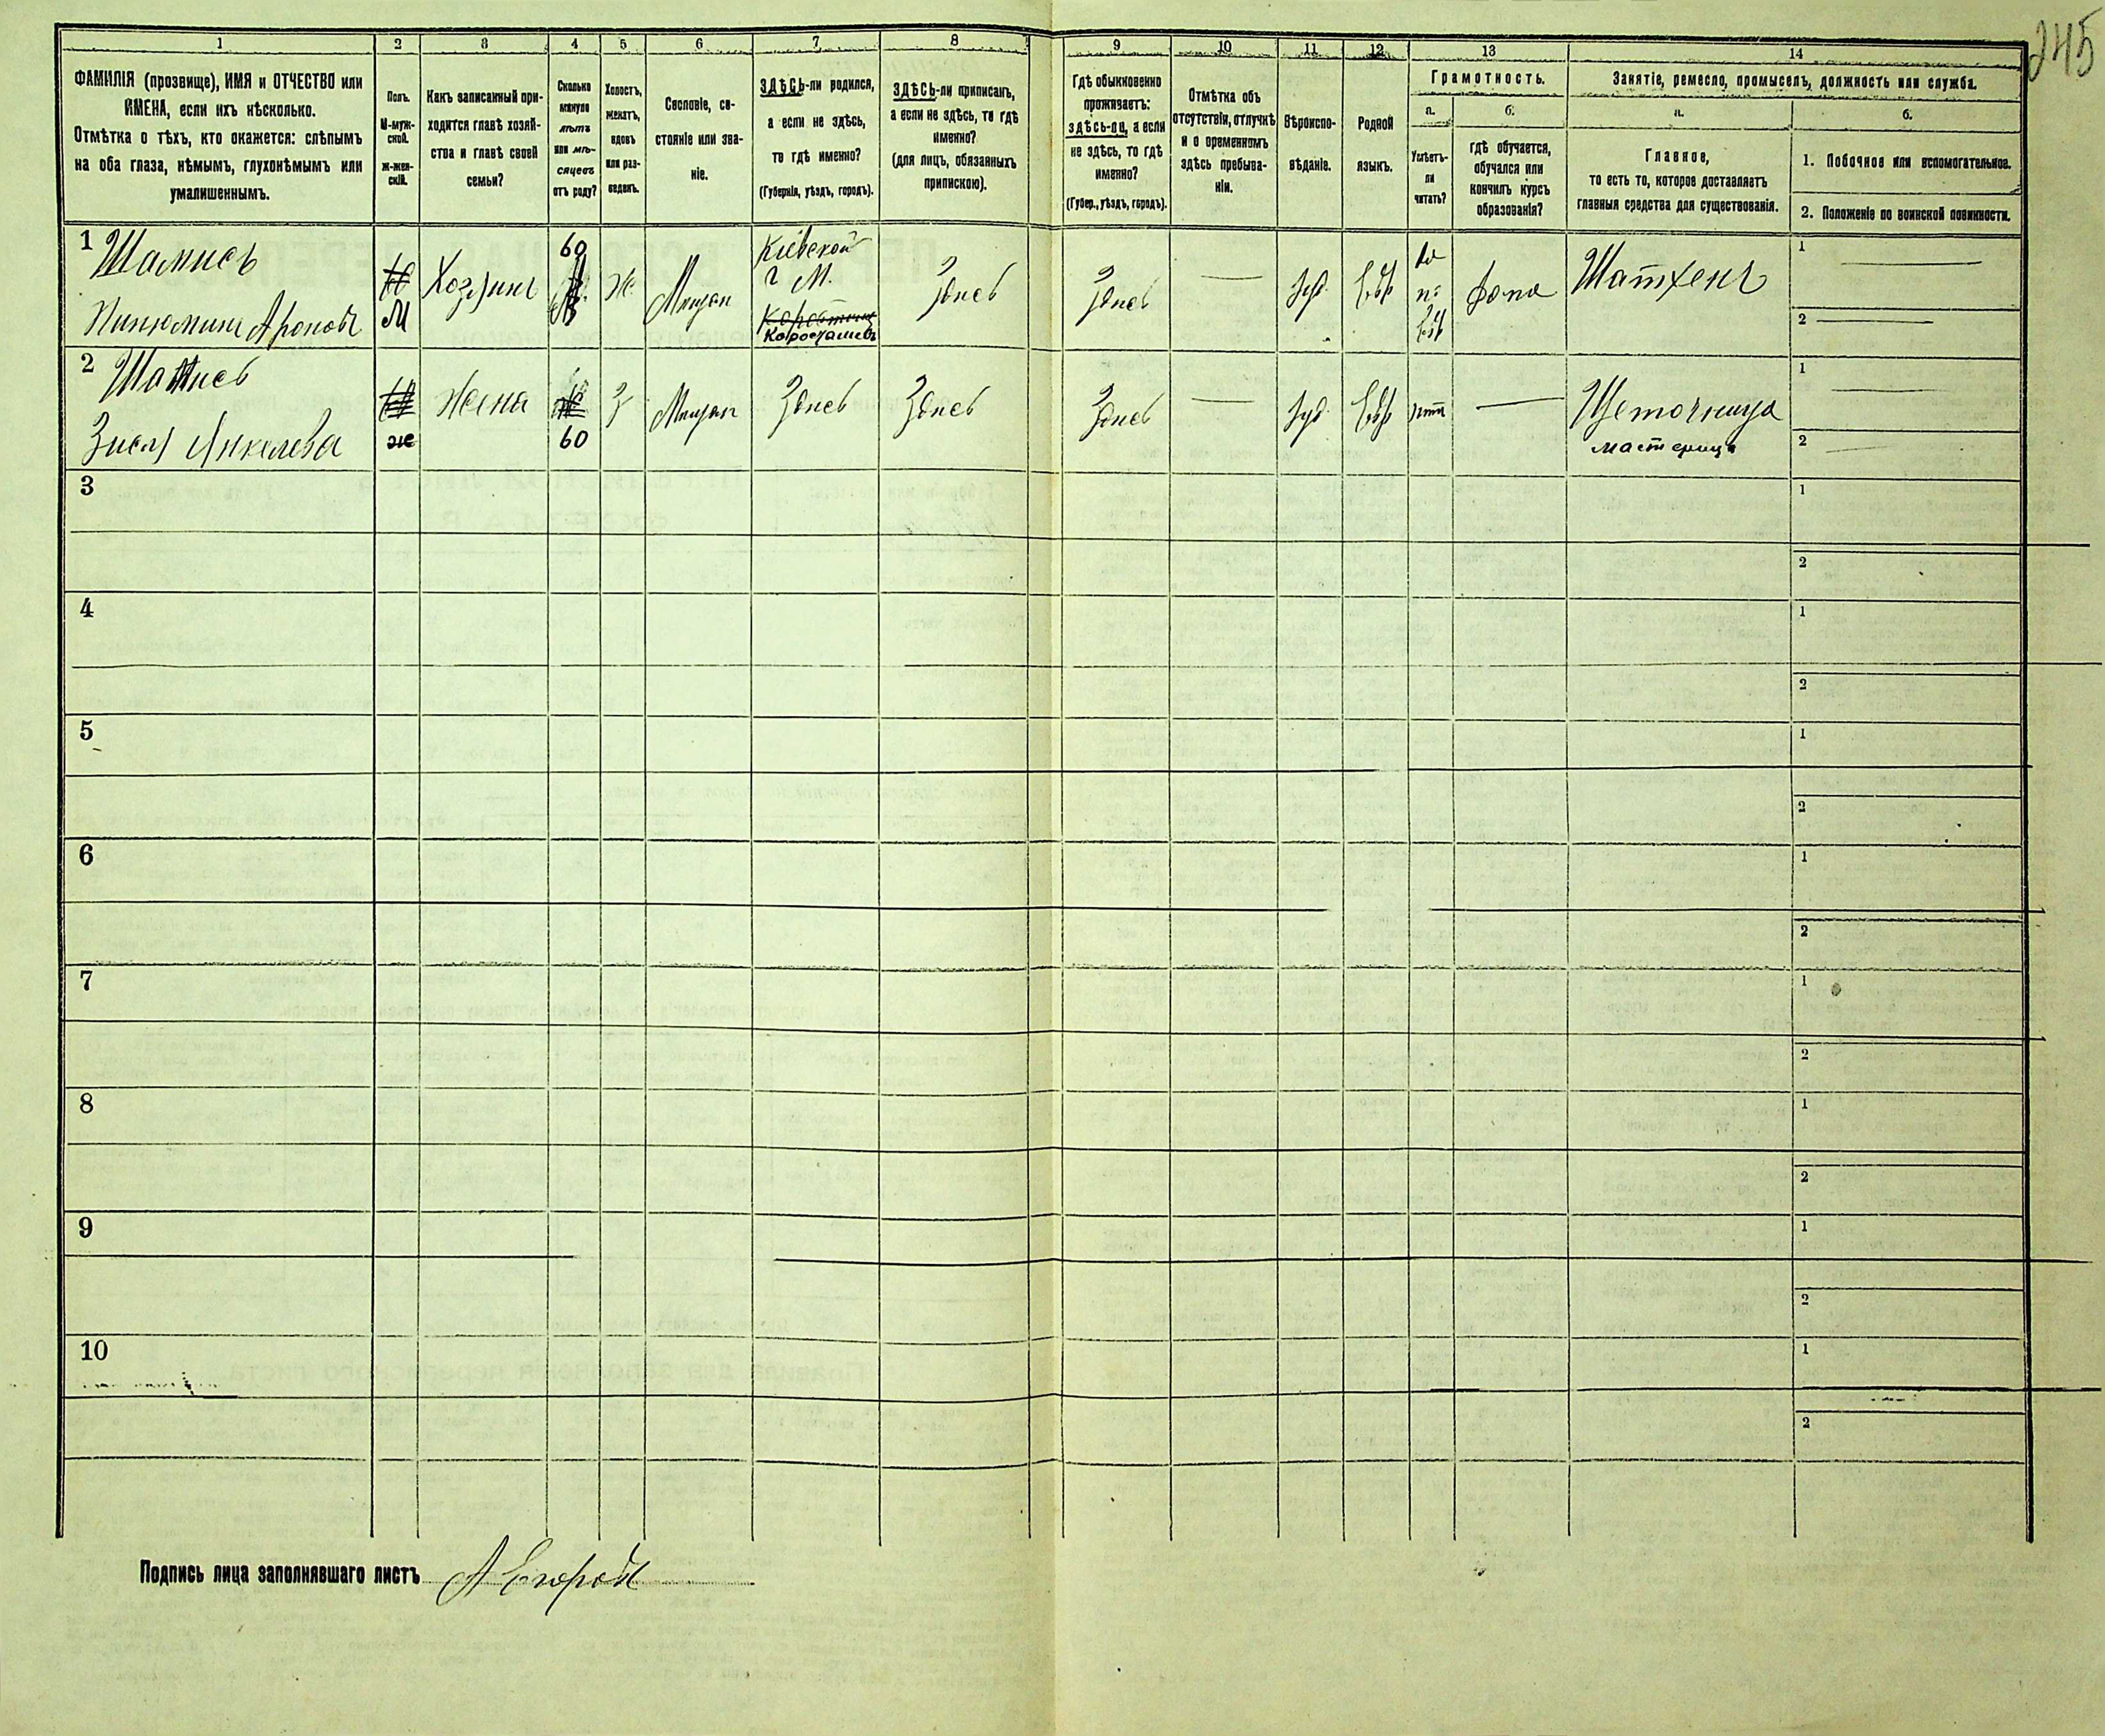 245
1 2 3 4 5 6 7 8 9 10 11 12 13 14
ФАМИЛІЯ (прозвище), ИМЯ и ОТЧЕСТВО или
ИМЕНА, если ихъ нѣсколько.
Отмѣтка о тѣхъ, кто окажется: слѣпымъ
на оба глаза, нѣмымъ, глухонѣмымъ или
умалишеннымъ.
Полъ.
М-муж-
ской.
ж-жен-
скій.
Какъ записанный при-
ходится главѣ хозяй-
ства и главѣ своей
семьи?
Сколько
минуло
лѣтъ
или мѣ-
сяцевъ
отъ роду?
Холостъ,
женатъ,
вдовъ
или раз-
веденъ.
Сословіе, со-
стояніе или зва-
ніе.
ЗДѢСЬ-ли родился,
а если не здѣсь,
то гдѣ именно?
(Губернія, уѣздъ, городъ).
ЗДѢСЬ-ли приписанъ,
а если не здѣсь, то гдѣ
именно?
(для лицъ, обязанныхъ
припискою).
Гдѣ обыкновенно
проживаетъ:
здѣсь-ли, а если
не здѣсь, то гдѣ
именно?
(Губер., уѣздъ, городъ).
Отмѣтка объ
отсутствіи, отлучкѣ
и о временномъ
здѣсь пребыва-
ніи.
Вѣроиспо-
вѣданіе.
Родной
языкъ.
Грамотность.
а.
Умѣетъ-
ли
читать?
б.
гдѣ обучается,
обучался или
кончилъ курсъ
образованія?
Занятіе, ремесло, промыселъ, должность или служба.
а.
Главное,
то есть то, которое доставляетъ
главныя средства для существованія.
б.
1. Побочное или вспомогательное.
2. Положеніе по воинской повинности.
1 Шамисъ
Нинюминъ Ароновъ
М
Хозяинъ
60
Ж.
Мѣщан
Кіевской
г М.
Коростышевъ
Здѣсь
Здѣсь
Іуд.
Евр
да
по
Евр
дома
1
2
2 Шамисъ
Зисля Янкелева
ж
Жена
60
З
Мѣщан
Здѣсь
Здѣсь
Здѣсь
Іуд.
Евр
нѣтъ
Щеточница
мастерица
1
2
3
1
2
4
1
2
5
1
2
6
1
2
7
1
2
8
1
2
9
1
2
10
1
2
Подпись лица заполнявшаго листъ